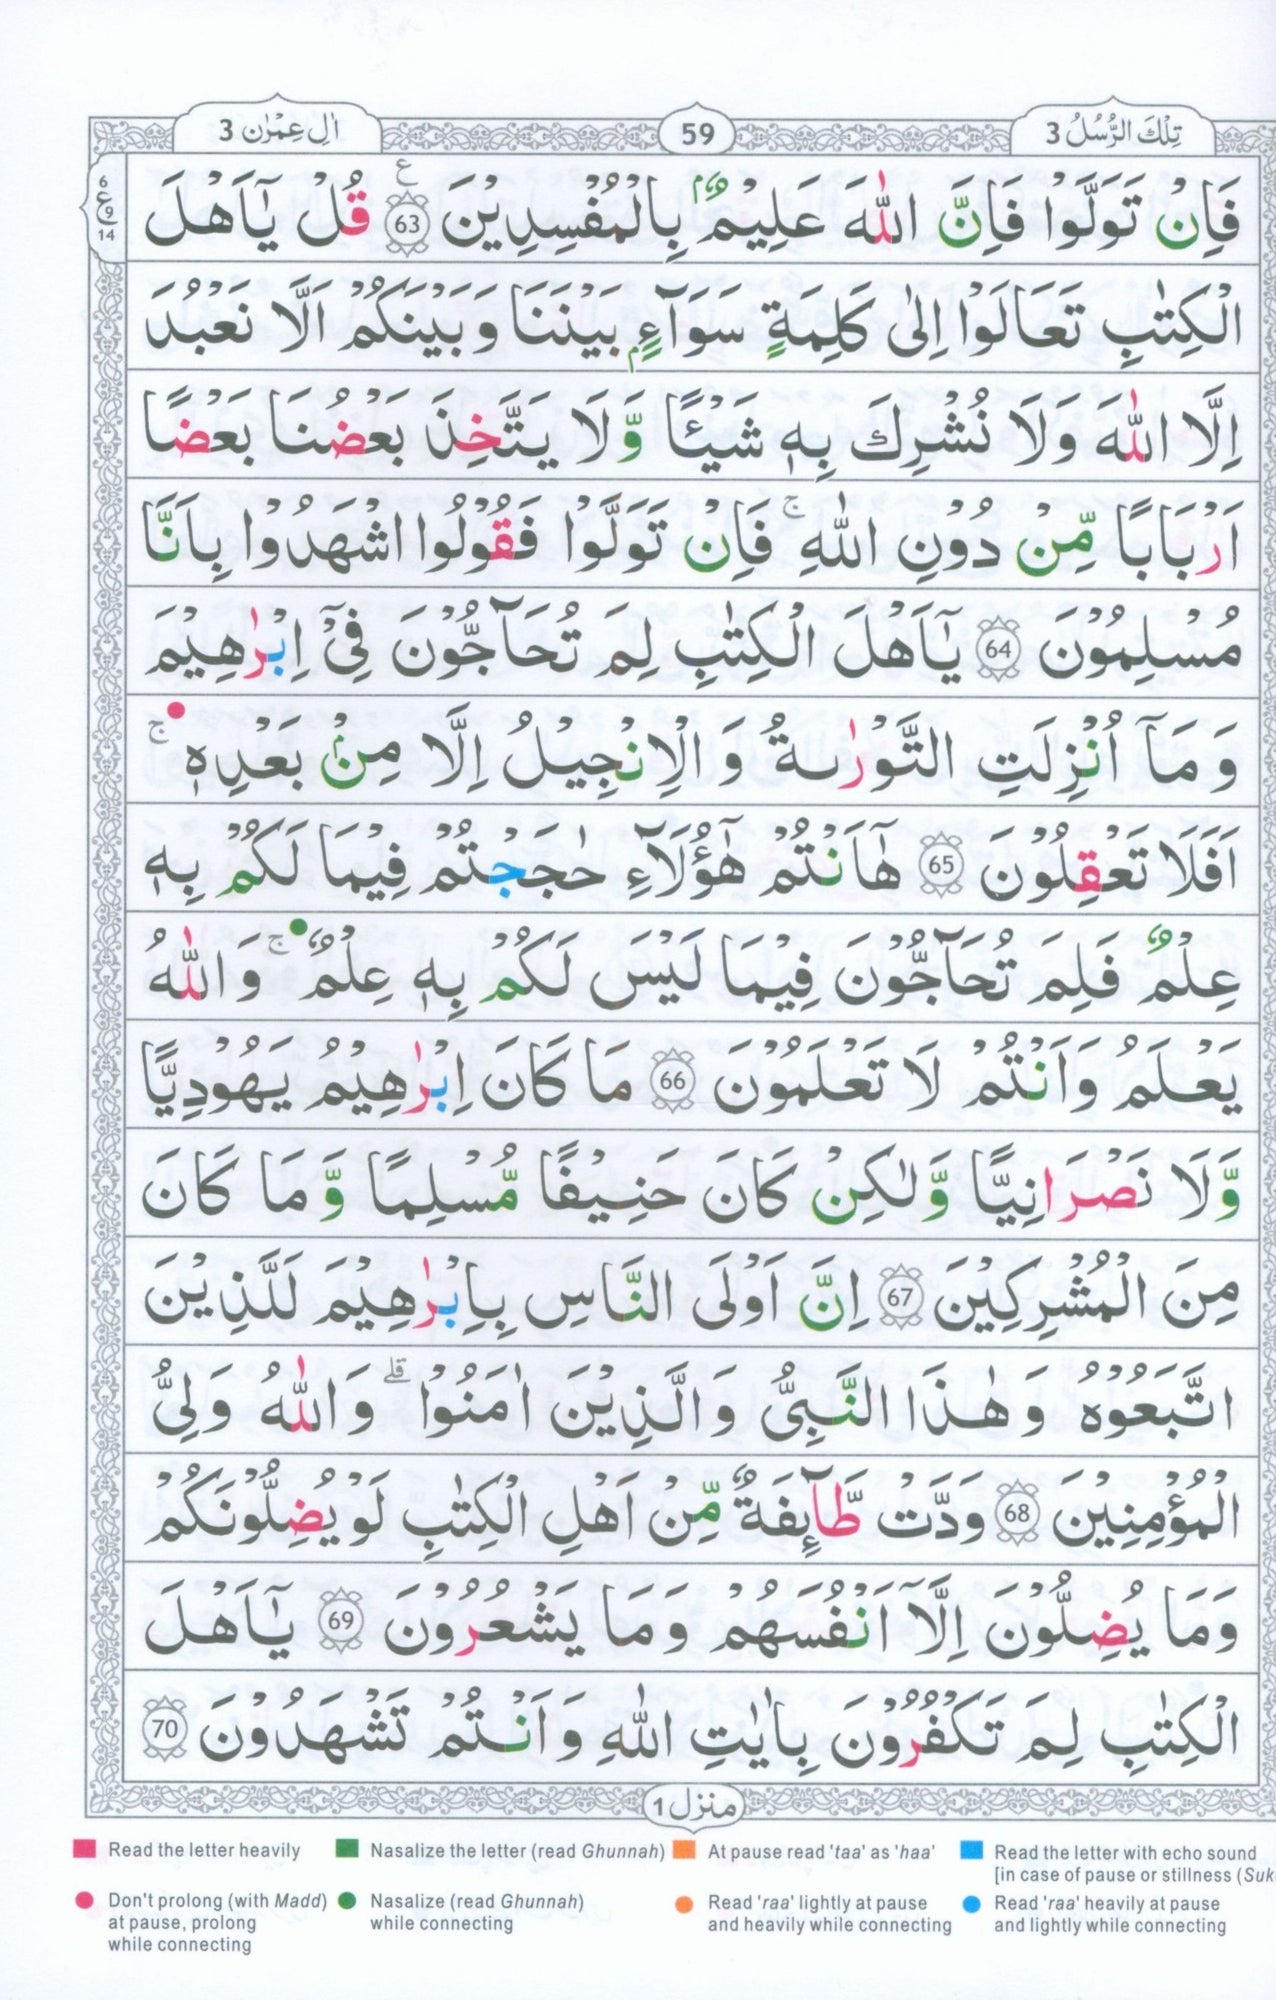 تِلْكَ الرُّسُلُ 3
59
اٰلِ عِمْرٰن 3
فَاِنْ تَوَلَّوْا فَاِنَّ اللّٰهَ عَلِيْمٌۢ بِالْمُفْسِدِيْنَ 63 ع قُلْ يٰٓاَهْلَ
6
ع
9
14
الْكِتٰبِ تَعَالَوْا اِلٰى كَلِمَةٍ سَوَآءٍۭ بَيْنَنَا وَبَيْنَكُمْ اَلَّا نَعْبُدَ
اِلَّا اللّٰهَ وَلَا نُشْرِكَ بِهٖ شَيْـًٔا وَّلَا يَتَّخِذَ بَعْضُنَا بَعْضًا
اَرْبَابًا مِّنْ دُوْنِ اللّٰهِ ۚ فَاِنْ تَوَلَّوْا فَقُوْلُوا اشْهَدُوْا بِاَنَّا
مُسْلِمُوْنَ 64 يٰٓاَهْلَ الْكِتٰبِ لِمَ تُحَآجُّوْنَ فِيْٓ اِبْرٰهِيْمَ
وَمَآ اُنْزِلَتِ التَّوْرٰىةُ وَالْاِنْجِيْلُ اِلَّا مِنْۢ بَعْدِهٖ ۚ
اَفَلَا تَعْقِلُوْنَ 65 هٰٓاَنْتُمْ هٰٓؤُلَآءِ حٰجَجْتُمْ فِيْمَا لَكُمْ بِهٖ
عِلْمٌ فَلِمَ تُحَآجُّوْنَ فِيْمَا لَيْسَ لَكُمْ بِهٖ عِلْمٌ ۚ وَاللّٰهُ
يَعْلَمُ وَاَنْتُمْ لَا تَعْلَمُوْنَ 66 مَا كَانَ اِبْرٰهِيْمُ يَهُوْدِيًّا
وَّلَا نَصْرَانِيًّا وَّلٰكِنْ كَانَ حَنِيْفًا مُّسْلِمًا وَّمَا كَانَ
مِنَ الْمُشْرِكِيْنَ 67 اِنَّ اَوْلَى النَّاسِ بِاِبْرٰهِيْمَ لَلَّذِيْنَ
اتَّبَعُوْهُ وَهٰذَا النَّبِيُّ وَالَّذِيْنَ اٰمَنُوْا ۗ وَاللّٰهُ وَلِيُّ
الْمُؤْمِنِيْنَ 68 وَدَّتْ طَّآىِٕفَةٌ مِّنْ اَهْلِ الْكِتٰبِ لَوْ يُضِلُّوْنَكُمْ
وَمَا يُضِلُّوْنَ اِلَّآ اَنْفُسَهُمْ وَمَا يَشْعُرُوْنَ 69 يٰٓاَهْلَ
الْكِتٰبِ لِمَ تَكْفُرُوْنَ بِاٰيٰتِ اللّٰهِ وَاَنْتُمْ تَشْهَدُوْنَ 70
منزل 1
Read the letter heavily
Nasalize the letter (read Ghunnah)
At pause read 'taa' as 'haa'
Read the letter with echo sound
[in case of pause or stillness (Suk
Don't prolong (with Madd)
at pause, prolong
while connecting
Nasalize (read Ghunnah)
while connecting
Read 'raa' lightly at pause
and heavily while connecting
Read 'raa' heavily at pause
and lightly while connecting